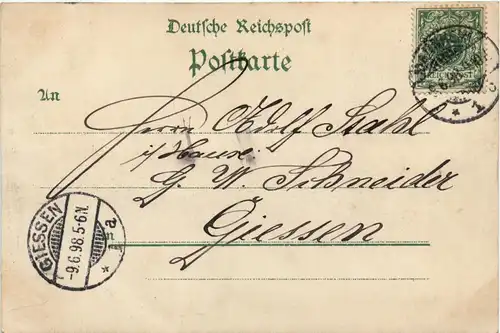 Deutsche Reichspost
Postkarte
An
Herrn Adolf Stahl
i/ Hause
G. W. Schneider
Giessen
REICHSPOST
GIESSEN
-9.6.98 5-6N.
* 1=a